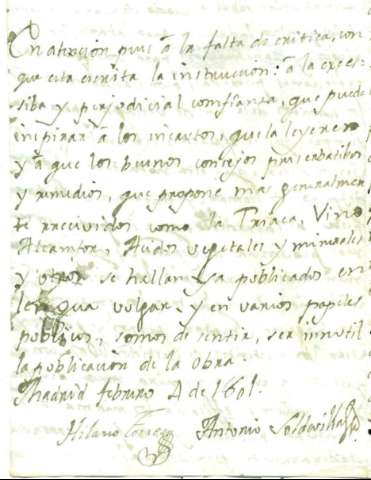 En atencion pues â la falta de critica, con
que esta escrita la instruccion: â la exce-
siba y perjudicial confianza, que puede
inspirar â los incautos, que la leyeren
y â que los buenos consejos preserbatibos
y remedios, que propone mas generalmen
te recividos como la Triaca, Vino
Alcamfor, Acidos vegetales y minerales
y otros se hallan ya publicados en
lengua vulgar, y en varios papeles
publicos, somos de sentir, ser innutil
la publicacion de la obra.
Madrid febrero 4 de 1601.
Hilario Torres Antonio